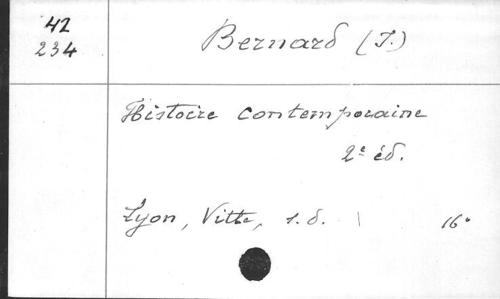 42
234
Bernard (J.)
Histoire contemporaine
2e éd.
Lyon, Vitte, s. d. 16°